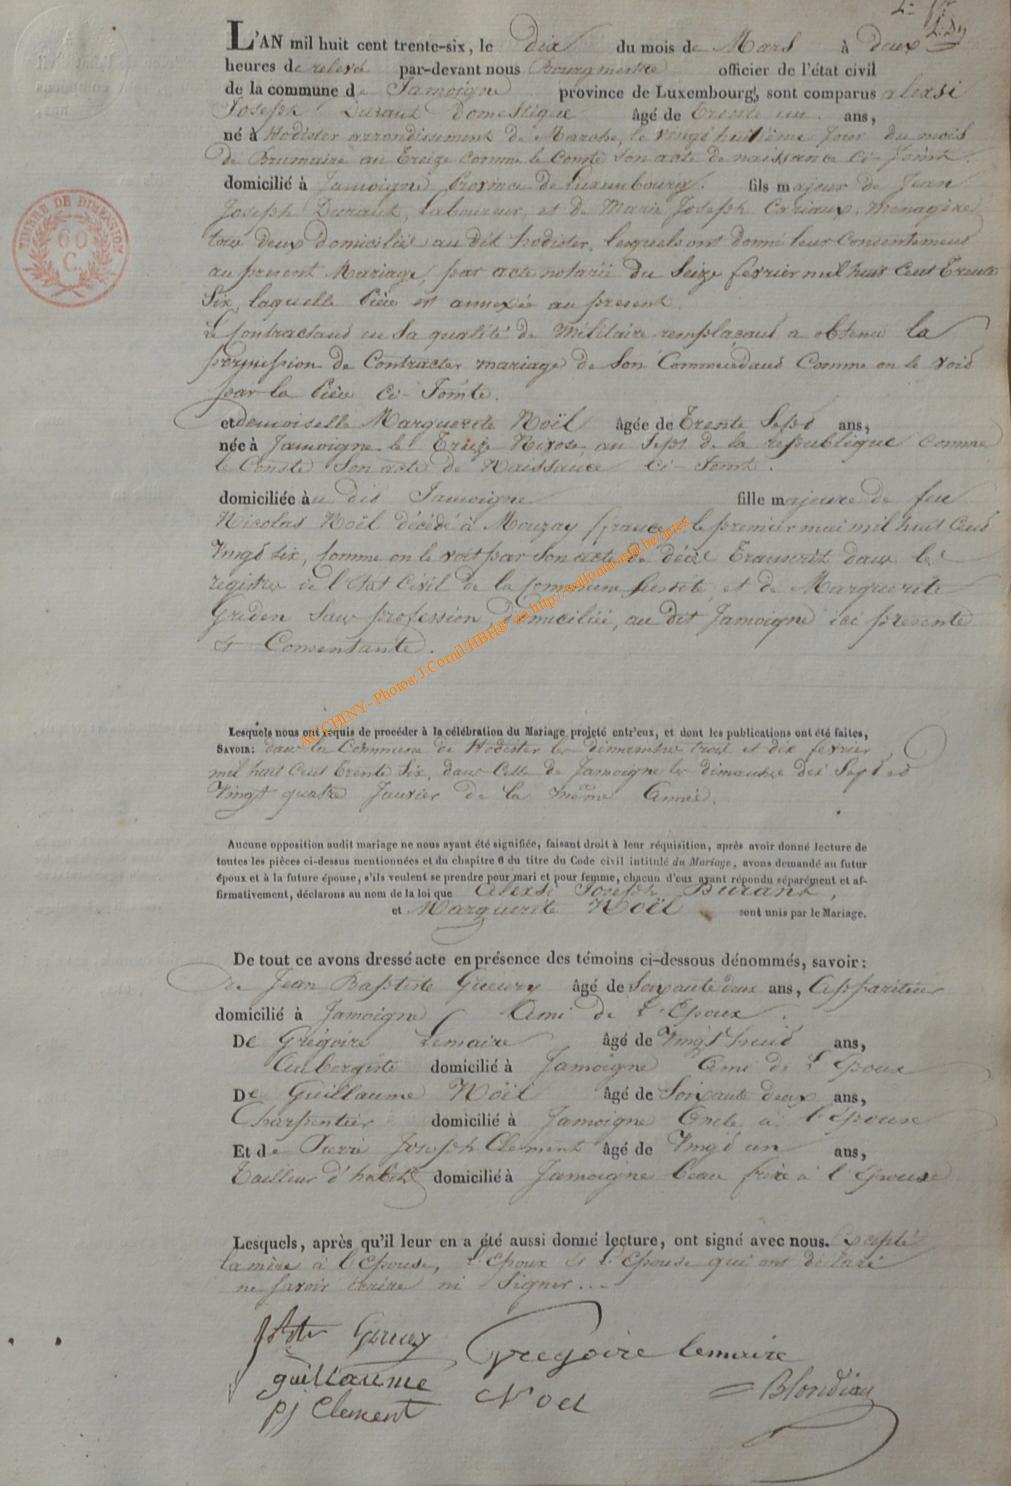 L'AN mil huit cent trente-six, le dix du mois de Mars à deux
heures de relevé par-devant nous Bourgmestre officier de l'état civil
de la commune de Jamoigne province de Luxembourg, sont comparus alexsi
Joseph Durant Domestique âgé de trente un ans,
né à Hodister arrondissement de Marche, le vingt huitième jour du mois
de Brumaire an treize comme le conste son acte de naissance ci-joint.
domicilié à Jamoigne Province de Luxembourg. fils majeur de Jean
Joseph Durant, Laboureur, et de Marie Joseph Coriaux, Menagère
tous deux domicilié au dit hodister, lesquels ont donné leur Consentement
au present Mariage, par acte notarié du Seize fevrier mil huit Cent Trente
Six, laquelle Pièce est annexée au present.
Le Contractant en Sa qualité de Militaire remplaçant a obtenu la
permission de Contracter mariage de Son Commendant Comme on le void
par la Pièce Ci-Jointe.
et demoiselle Marguerite Noël âgée de Trente Sept ans,
née à Jamoigne le Treize Nivose, an Sept de la republique comme
le Conste Son acte de Naissance Ci Joint.
domiciliée au dit Jamoigne fille majeure de feu
Nicolas Noël décédé à Mouzay france le premier mai mil huit Cent
Vingt six, Comme on le voit par son acte de décé Transcrit dans les
registres de l'Etat Civil de la Commune Susdite, et de Marguerite
Greden Sans profession, domiciliée, au dit Jamoigne ici presente
et Consentante.
AC CHINY - Photos: J.Cornil HBHR
Lesquels nous ont requis de procéder à la célébration du Mariage projeté entr'eux, et dont les publications ont été faites,
SAVOIR: dans la Commune de Hodister les dimanches trois et dix fevrier
mil huit Cent trente Six, dans Celle de Jamoigne les dimanches dix Sept et
Vingt quatre Janvier de la même Année.
Aucune opposition audit mariage ne nous ayant été signifiée, faisant droit à leur réquisition, après avoir donné lecture de
toutes les pièces ci-dessus mentionnées et du chapitre 6 du titre du Code civil intitulé du Mariage, avons demandé au futur
époux et à la future épouse, s'ils veulent se prendre pour mari et pour femme, chacun d'eux ayant répondu séparément et af-
firmativement, déclarons au nom de la loi que Alexsi Joseph Durant,
et Marguerite Noël sont unis par le Mariage.
De tout ce avons dressé acte en présence des témoins ci-dessous dénommés, savoir:
de Jean Baptiste Gueury âgé de Soixante deux ans, Appariteur
domicilié à Jamoigne Ami de l'Epoux.
De Grégoire Lemaire âgé de Vingt neuf ans,
Aubergiste domicilié à Jamoigne Ami de l'Epoux
De Guillaume Noël âgé de Soixante deux ans,
Charpentier domicilié à Jamoigne Oncle à l'épouse
Et de Pierre Joseph Clement âgé de Vingt un ans,
Tailleur d'habits domicilié à Jamoigne beau frère à l'Epouse
Lesquels, après qu'il leur en a été aussi donné lecture, ont signé avec nous. Excepté
la mère à l'Epouse, l'Epoux et l'Epouse qui ont déclaré
ne savoir écrire ni Signer...
Gregoire lemaire
guillaume Noel
pj Clement
TIMBRE DE DIMENSION
60
C.